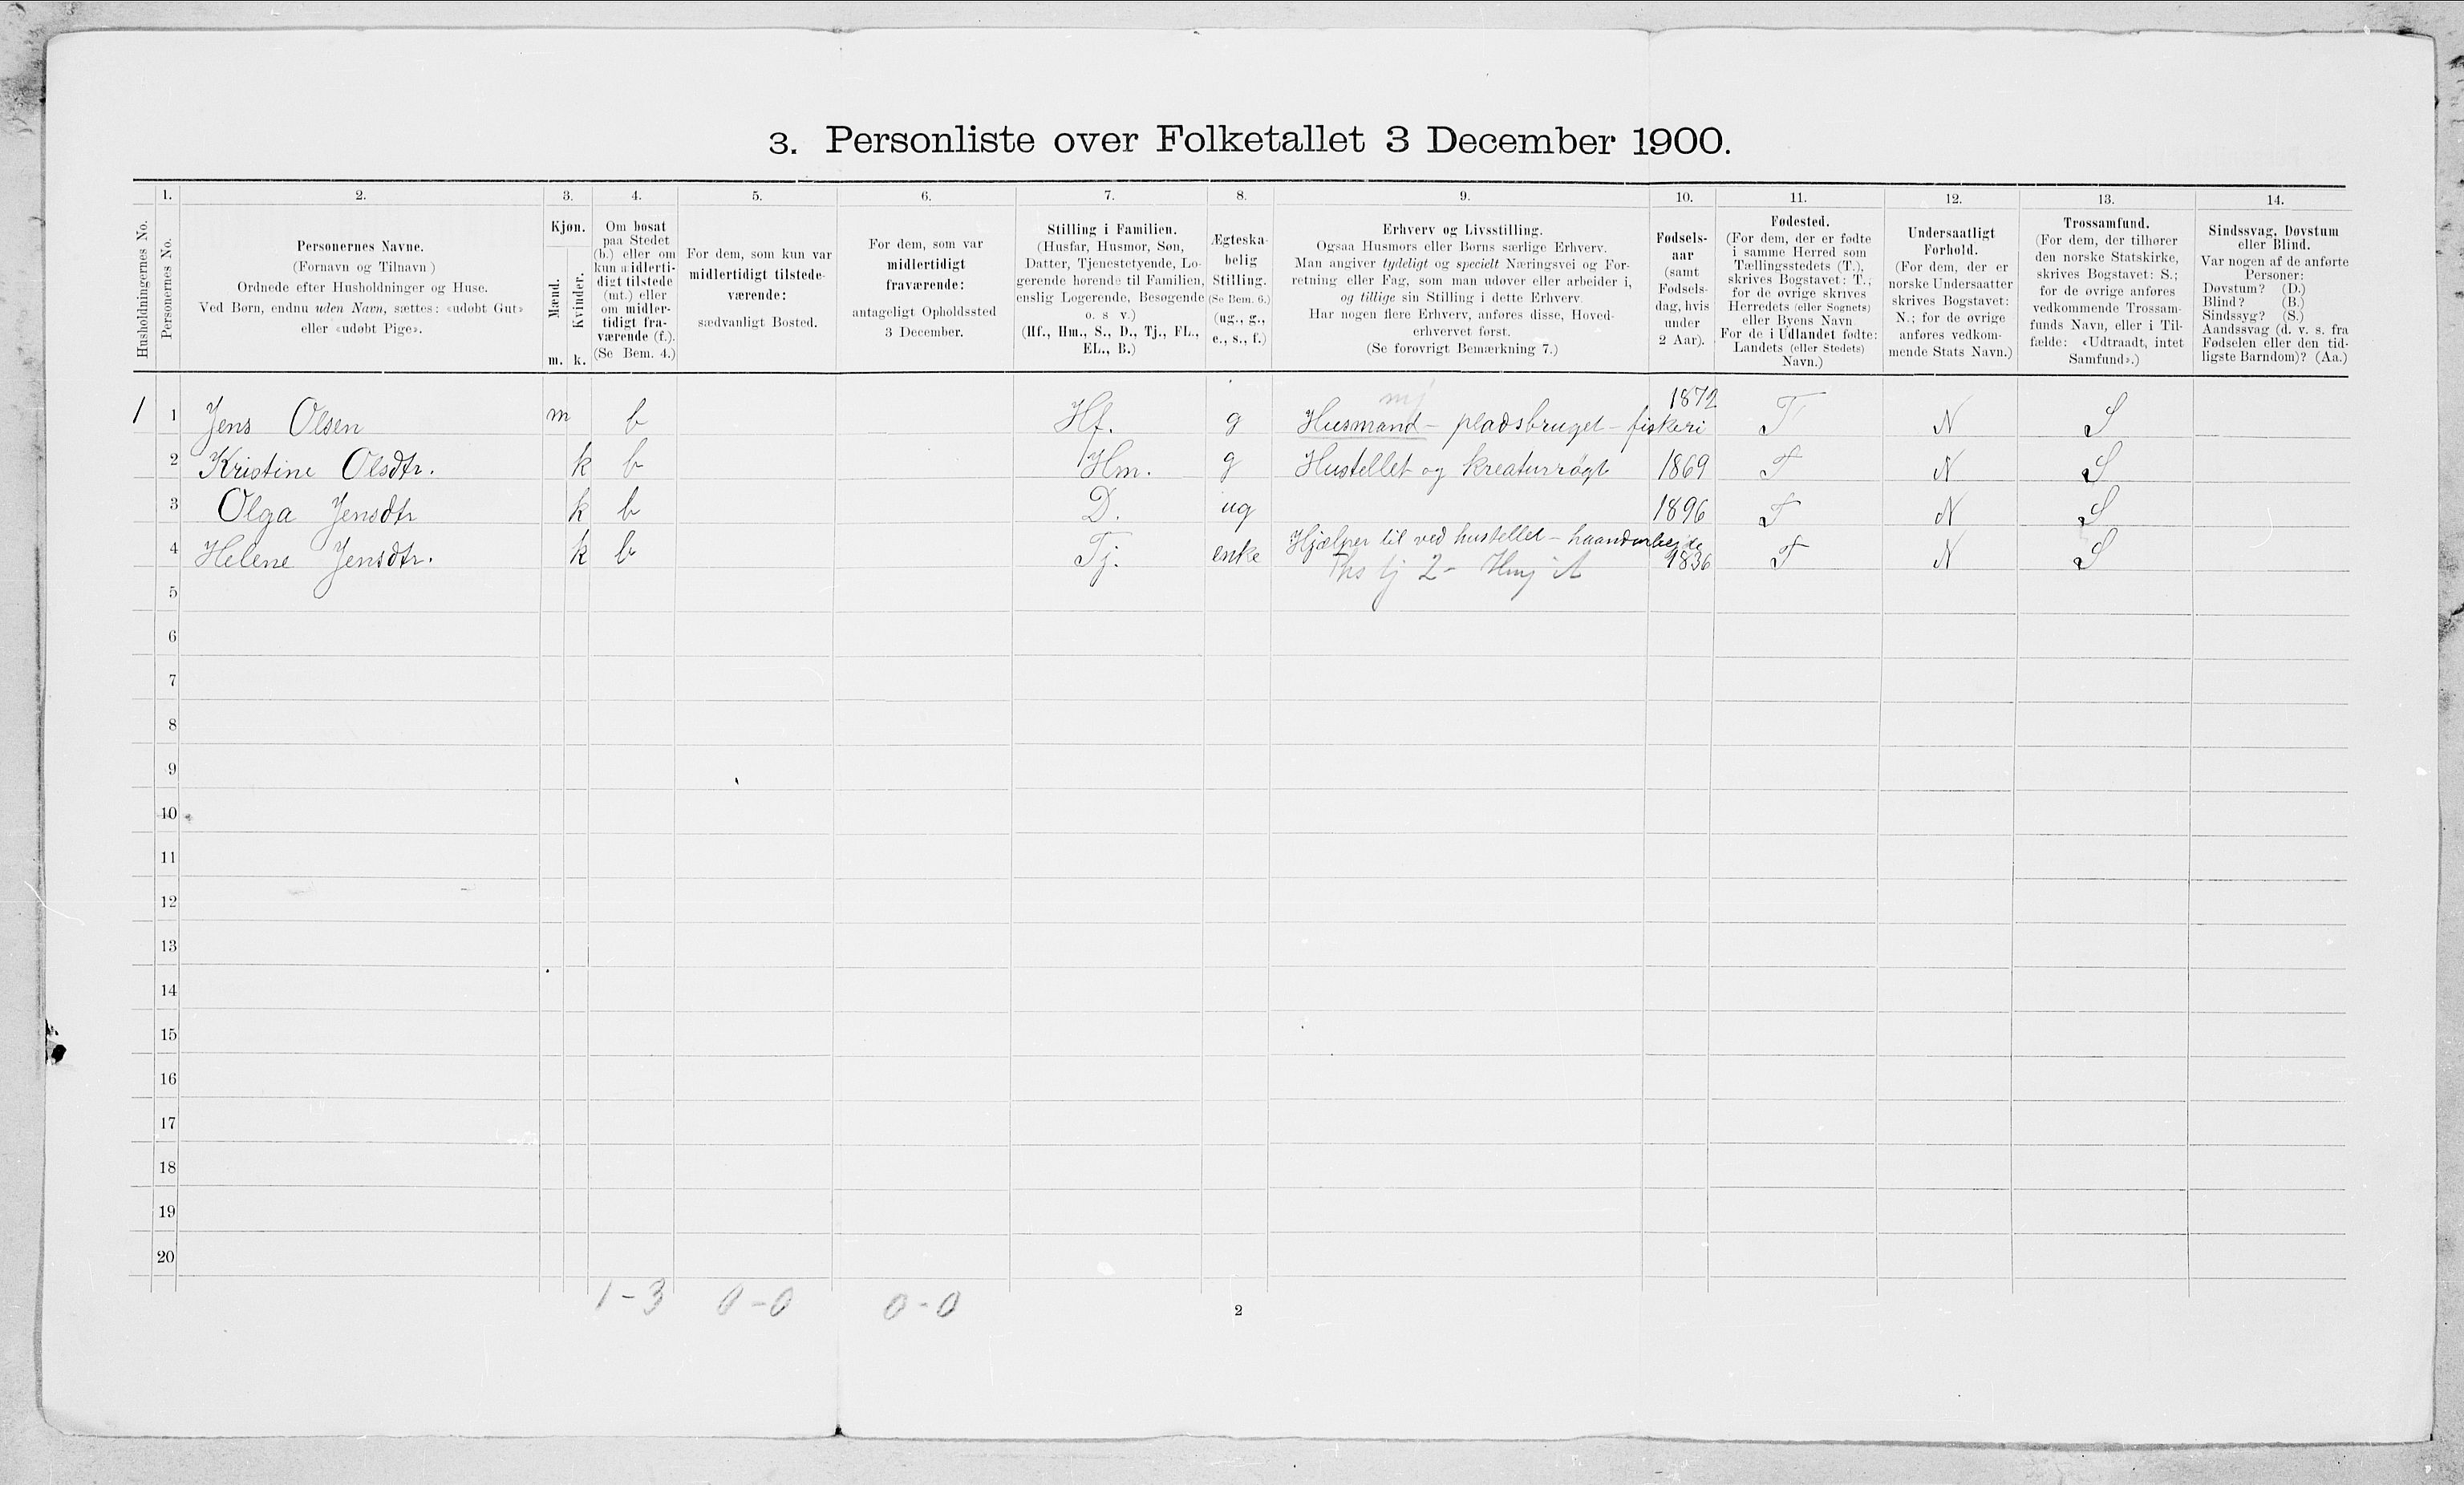 3. Personliste over Folketallet 3 December 1900.
1. 2. 3. 4. 5. 6. 7. 8. 9. 10. 11. 12. 13. 14.
Husholdningernes No.
Personernes No.
Personernes Navne.
(Fornavn og Tilnavn)
Ordnede efter Husholdninger og Huse.
Ved Børn, endnu uden Navn, sættes: «udøbt Gut»
eller «udøbt Pige».
Kjøn.
Mænd.
Kvinder.
m. k.
Om bosat
paa Stedet
(b.) eller om
kun midlerti-
digt tilstede
(mt.) eller
om midler-
tidigt fra-
værende (f.).
(Se Bem. 4.)
For dem, som kun var
midlertidigt tilstede-
værende:
sædvanligt Bosted.
For dem, som var
midlertidigt
fraværende:
antageligt Opholdssted
3 December.
Stilling i Familien.
(Husfar, Husmor, Søn,
Datter, Tjenestetyende, Lo-
gerende hørende til Familien,
enslig Logerende, Besøgende
o. s v.)
(Hf., Hm., S., D., Tj., FL.,
EL., B.)
Ægteska-
belig
Stilling.
(Se Bem. 6.)
(ug., g.,
e., s., f.)
Erhverv og Livsstilling.
Ogsaa Husmors eller Børns særlige Erhverv.
Man angiver tydeligt og specielt Næringsvei og For-
retning eller Fag, som man udøver eller arbeider i,
og tillige sin Stilling i dette Erhverv.
Har nogen flere Erhverv, anføres disse, Hoved-
erhvervet først.
(Se forøvrigt Bemærkning 7.)
Fødsels-
aar
(samt
Fødsels-
dag, hvis
under
2 Aar).
Fødested.
(For dem, der er fødte
i samme Herred som
Tællingsstedets (T.),
skrives Bogstavet: T.;
for de øvrige skrives
Herredets (eller Sognets)
eller Byens Navn
For de i Udlandet fødte:
Landets (eller Stedets)
Navn.)
Undersaatligt
Forhold.
(For dem, der er
norske Undersaatter
skrives Bogstavet:
N.; for de øvrige
anføres vedkom-
mende Stats Navn.)
Trossamfund.
(For dem, der tilhører
den norske Statskirke,
skrives Bogstavet: S.;
for de øvrige anføres
vedkommende Trossam-
funds Navn, eller i Til-
fælde: «Udtraadt, intet
Samfund».)
Sindssvag, Døvstum
eller Blind.
Var nogen af de anførte
Personer:
Døvstum? (D.)
Blind? (B.)
Sindssyg? (S.)
Aandssvag (d. v. s. fra
Fødselen eller den tid-
ligste Barndom)? (Aa.)
1 1 Jens Olsen m b Hf. g Husmand - pladsbruget - fiskeri 1872 T N S
2 Kristine Olsdtr. k b Hm. g Hustellet og kreaturrøgt 1869 T N S
3 Olga Jensdtr k b D. ug 1896 T N S
4 Helene Jensdtr. k b Tj. enke Hjælper til ved hustellet - haandarbejde 1836 T N S
5
6
7
8
9
10
11
12
13
14
15
16
17
18
19
20
1-3 0-0 0-0
2